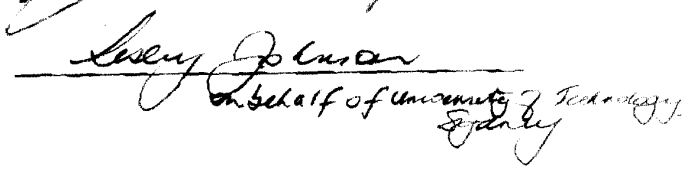 Lesley Johnson
on behalf of University of Technology,
Sydney